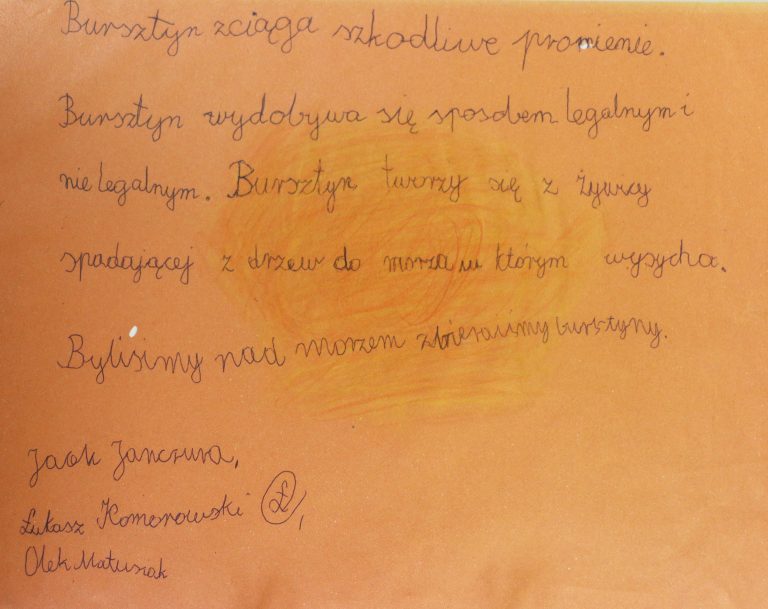 Bursztyn zciąga szkodliwe promienie.
Bursztyn wydobywa się sposobem legalnym i
nie legalnym. Bursztyn tworzy się z żywicy
spadającej z drzew do morza w którym wysycha.
Bylisimy nad morzem zbieraliśmy bursztyny.
Jacek Janczura,
Łukasz Komorowski Ł,
Olek Matusiak